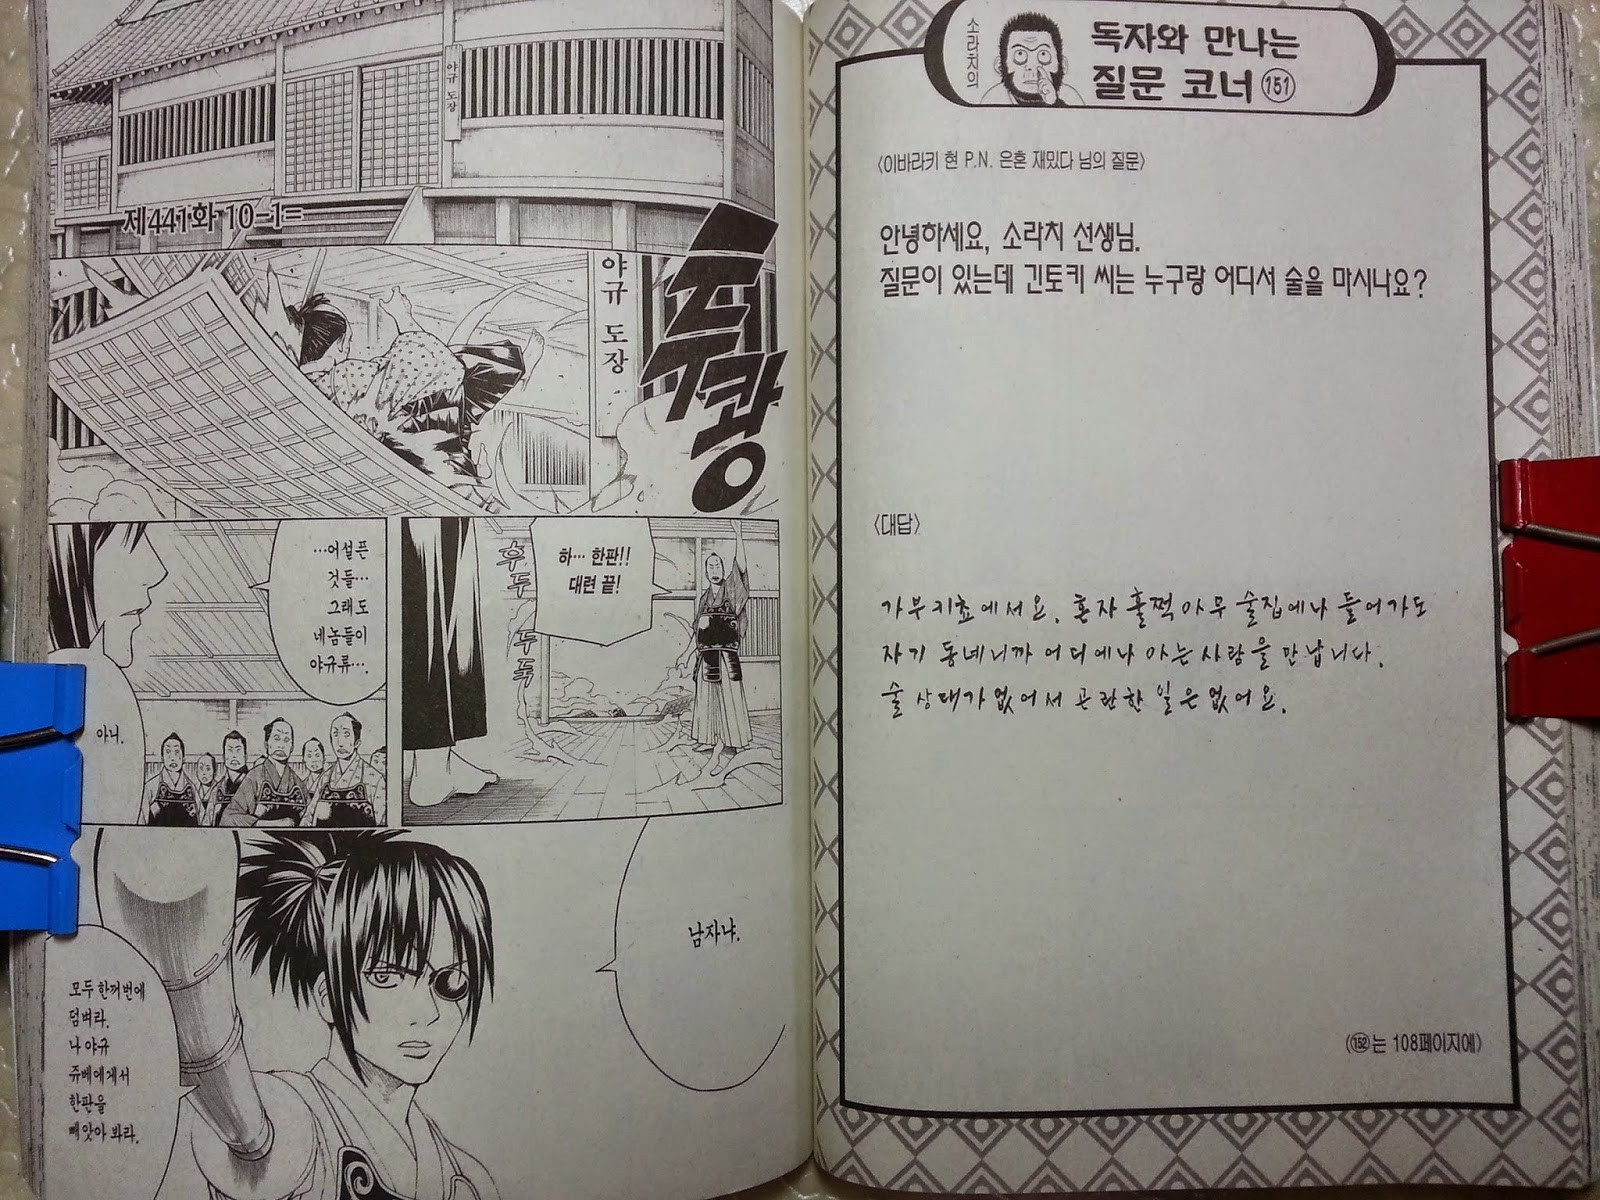 야규 도장
제441화 10-1=
야규 도장
투쾅
하… 한판!!
대련 끝!
후두두둑
…어설픈
것들…
그래도
네놈들이
야규류….
아니.
남자냐.
모두 한꺼번에
덤벼라.
나 야규
쥬베에게서
한판을
빼앗아 봐라.
소라치의
독자와 만나는
질문 코너 151
〈이바라키 현 P.N. 은혼 재밌다 님의 질문〉
안녕하세요, 소라치 선생님.
질문이 있는데 긴토키 씨는 누구랑 어디서 술을 마시나요?
〈대답〉
가부키쵸에서요. 혼자 훌쩍 아무 술집에나 들어가도
자기 동네니까 어디에나 아는 사람을 만납니다.
술 상대가 없어서 곤란한 일은 없어요.
(152는 108페이지에)